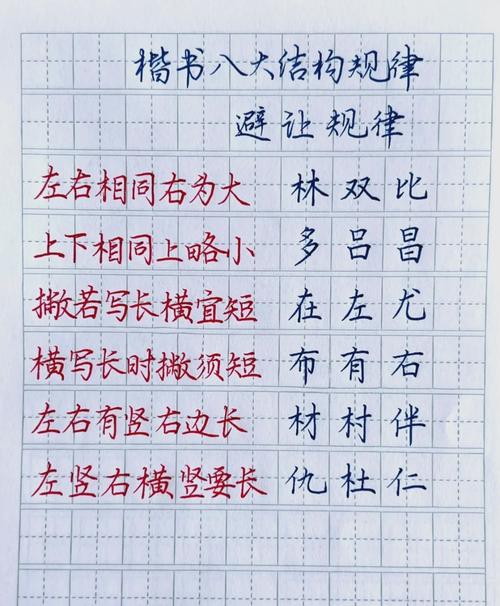 楷书八大结构规律
避让规律
左右相同右为大 林双比
上下相同上略小 多吕昌
撇若写长横宜短 在左尤
横写长时撇须短 布有右
左右有竖右边长 材村伴
左竖右横竖要长 仇杜仁